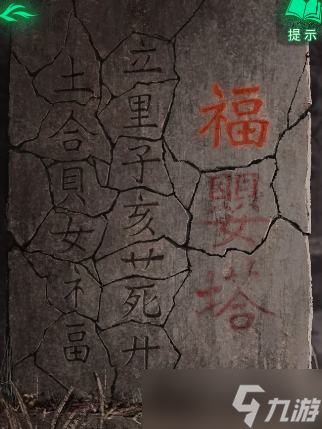 提示
福嬰塔
立里子亥艹死廾
土合貝女礻畐
九游